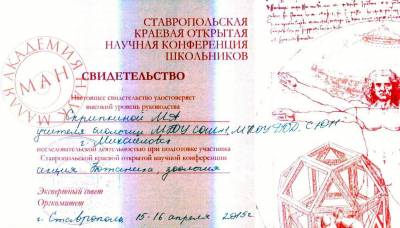 СТАВРОПОЛЬСКАЯ
КРАЕВАЯ ОТКРЫТАЯ
НАУЧНАЯ КОНФЕРЕНЦИЯ
ШКОЛЬНИКОВ
МАЛАЯ АКАДЕМИЯ НАУК
МАН
СВИДЕТЕЛЬСТВО
Настоящее свидетельство удостоверяет
высокий уровень руководства
Скрипкиной МА
учителя биологии МОУ СОШ
г. Михайловск
исследовательской деятельностью при подготовке участника
Ставропольской краевой открытой научной конференции
секция Ботаника, зоология
Экспертный совет
Оргкомитет
г. Ставрополь 15-16 апреля 2015г